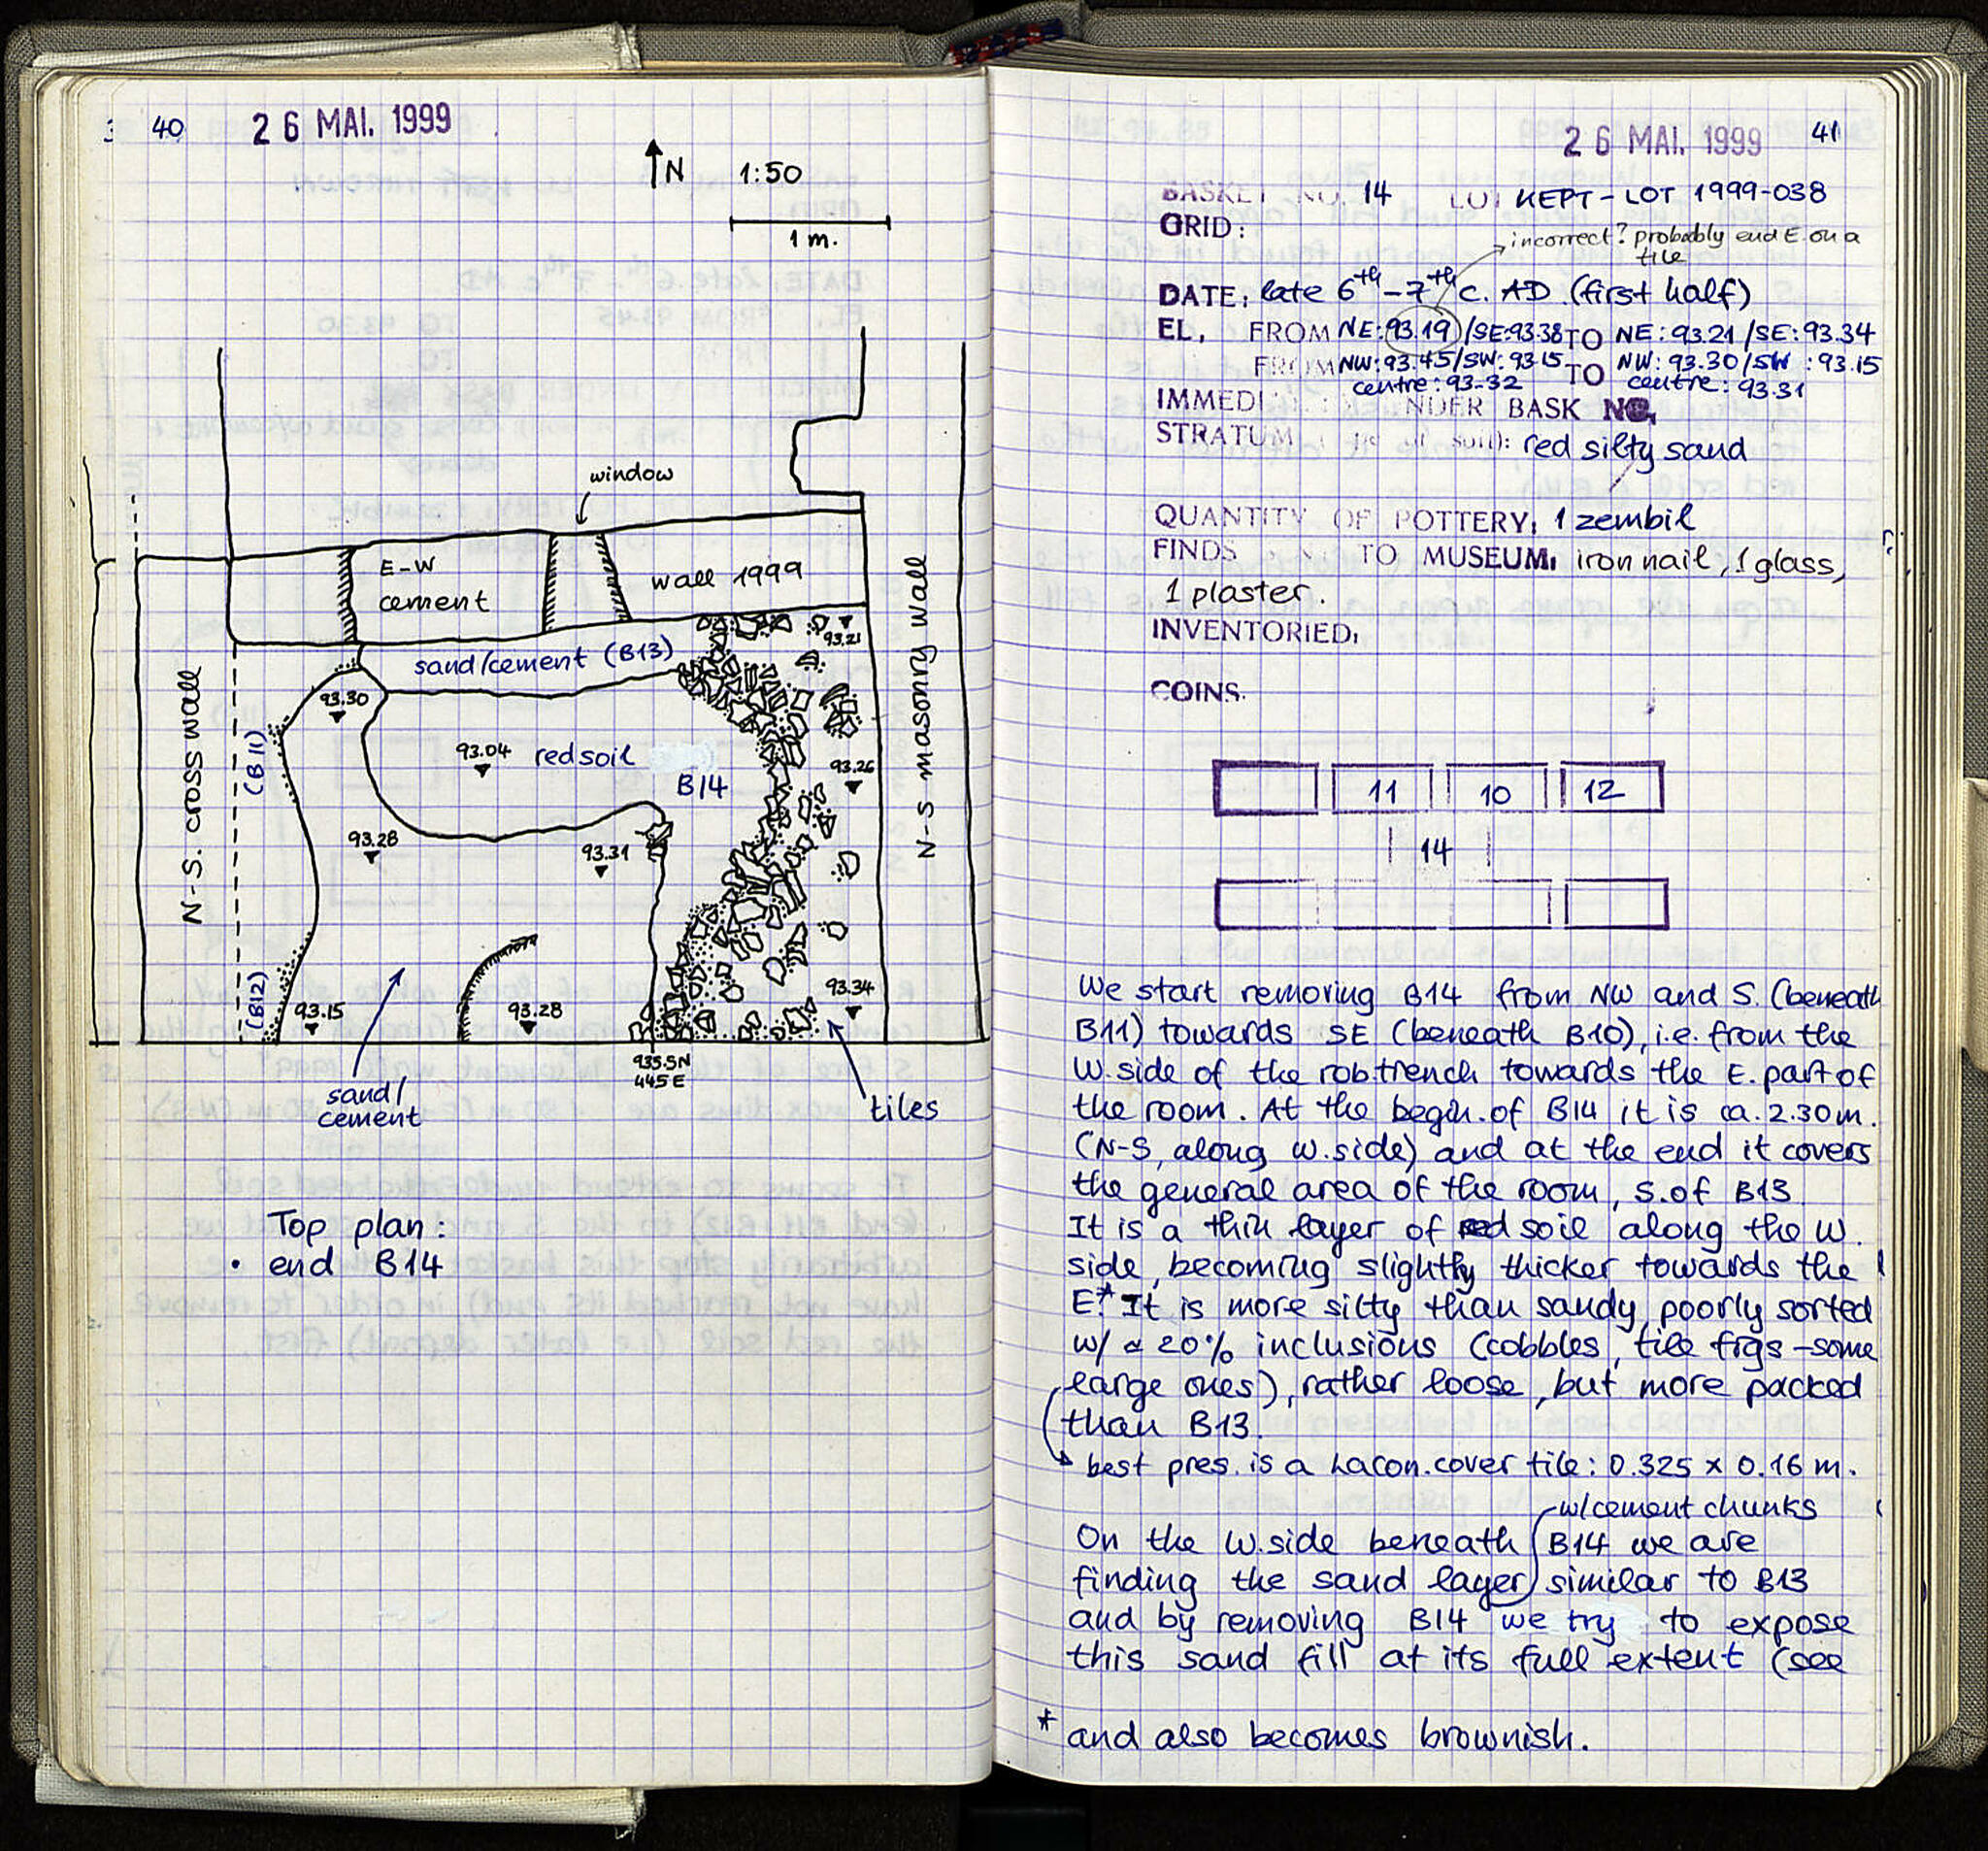 40
26 MAI. 1999
N
1:50
1 m.
window
E-W
cement
wall 1999
93.21
sand/cement (B13)
N-S. cross wall
N-S masonry wall
93.30
(B11)
93.04
red soil
B14
93.26
93.28
93.31
(B12)
93.15
93.28
93.34
935.5N
445E
sand/
cement
tiles
Top plan:
• end B14
41
26 MAI. 1999
BASKET NO. 14 LOT KEPT - LOT 1999-038
GRID:
incorrect? probably end E. on a
tile
DATE: late 6th - 7th c. AD (first half)
EL. FROM NE: 93.19 / SE: 93.38 TO NE: 93.21 / SE: 93.34
FROM NW: 93.45/SW: 93.15 TO NW: 93.30/SW: 93.15
centre: 93.32 centre: 93.31
IMMEDI NDER BASK NO.
STRATUM soil): red silty sand
QUANTITY OF POTTERY: 1 zembil
FINDS TO MUSEUM: iron nail, 1 glass,
1 plaster.
INVENTORIED:
COINS.
11 10 12
14
We start removing B14 from NW and S. (beneath
B11) towards SE (beneath B10), i.e. from the
W. side of the robtrench towards the E. part of
the room. At the begin. of B14 it is ca. 2.30 m.
(N-S, along W. side) and at the end it covers
the general area of the room, S. of B13
It is a thin layer of red soil along the W.
side, becoming slightly thicker towards the
E.* It is more silty than sandy, poorly sorted
w/ ± 20% inclusions (cobbles, tile frgs - some
large ones), rather loose, but more packed
than B13.
best pres. is a Lacon. cover tile: 0.325 x 0.16 m.
w/cement chunks
On the W. side beneath B14 we are
finding the sand layer similar to B13
and by removing B14 we try to expose
this sand fill at its full extent (see
* and also becomes brownish.